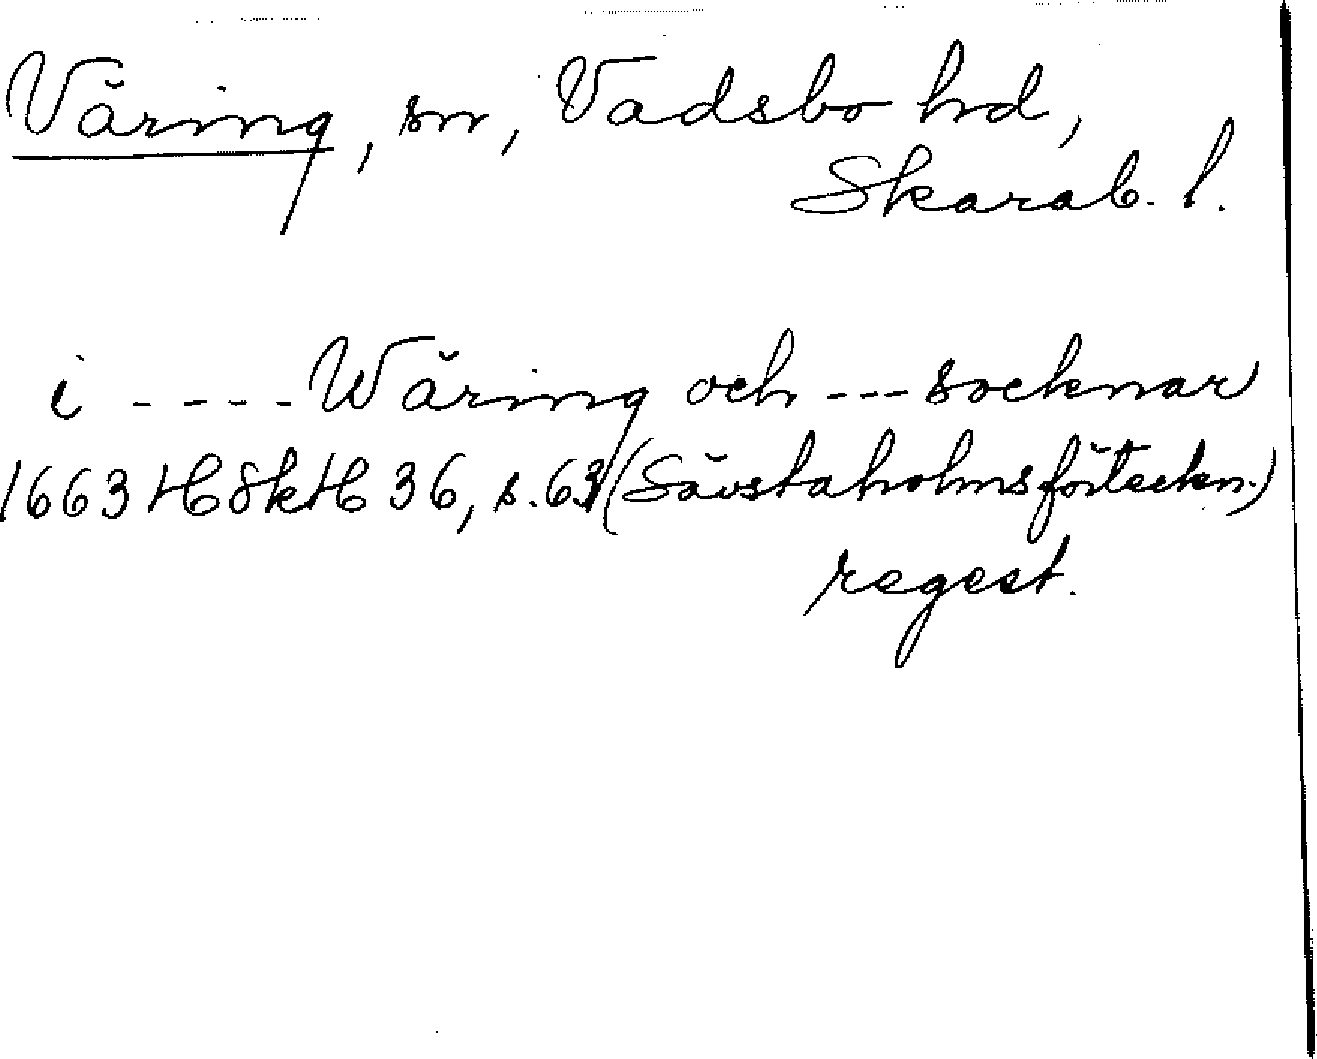 Väring, sn, Vadsbo hd,
Skarab. l.
i ---- Wäring och --- socknar
1663 HSkH 36, s. 63 (Sävstaholmsförteckn.)
regest.